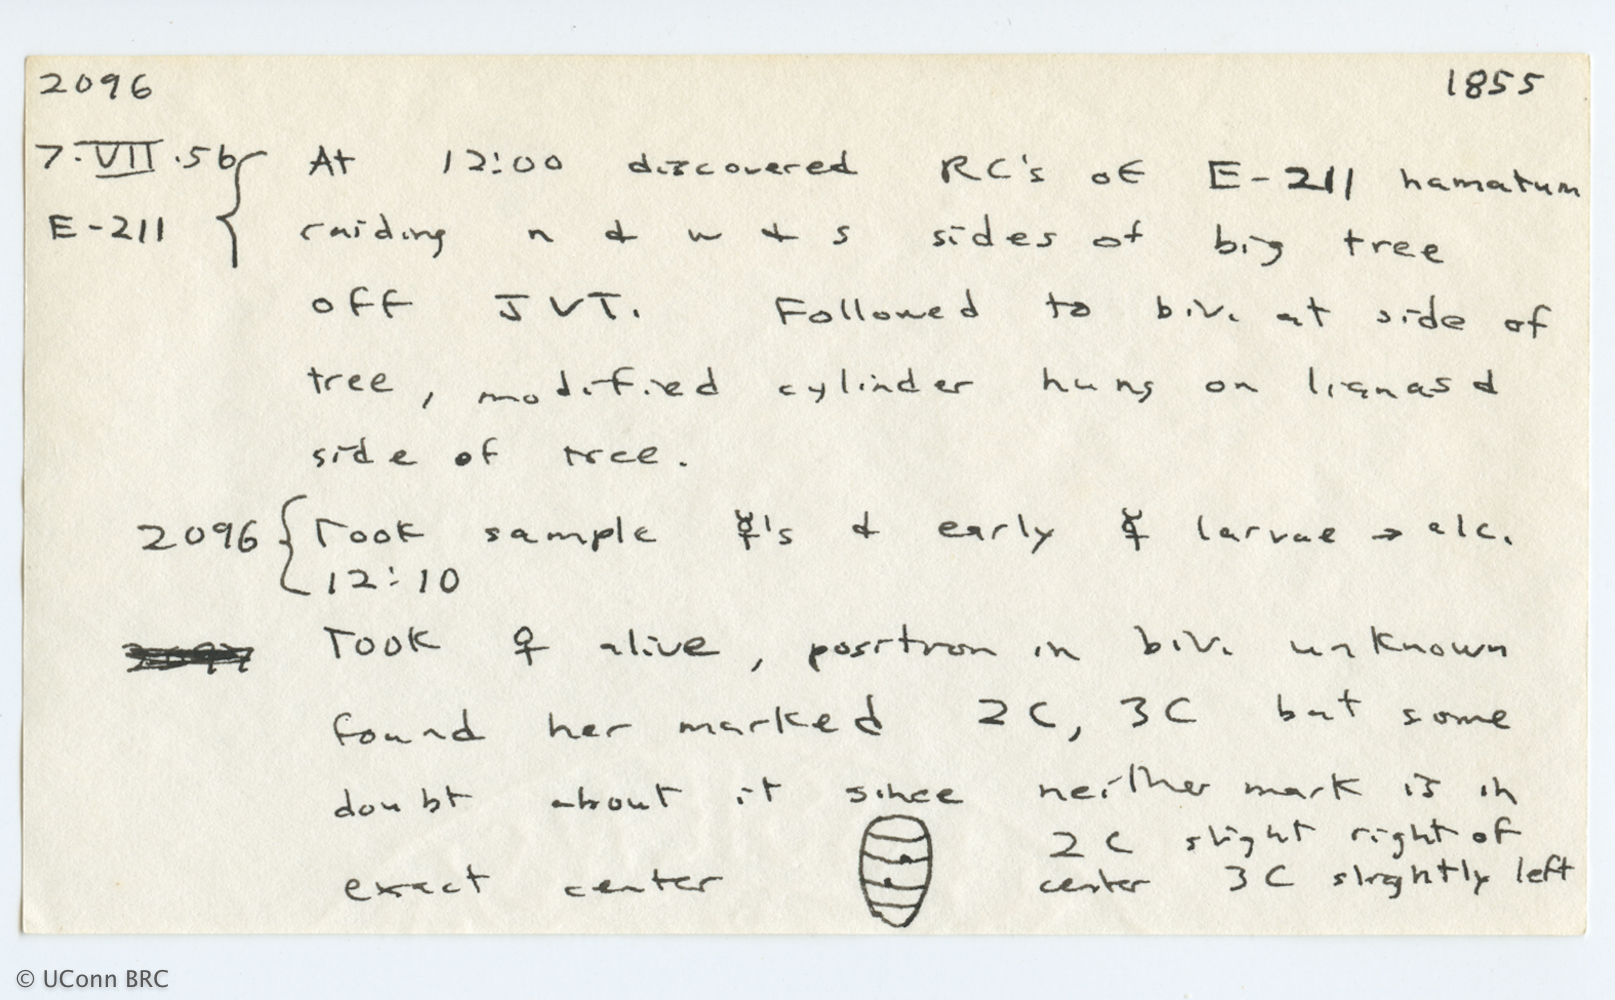 2096 1855
7.VII.56 At 12:00 discovered RC's of E-211 hamatum
E-211 raiding n & w & s sides of big tree
off JVT. Followed to biv. at side of
tree, modified cylinder hung on lianas &
side of tree.
2096 Took sample ☿'s & early ☿ larvae → alc.
12:10
Took ♀ alive, position in biv. unknown
found her marked 2C, 3C but some
doubt about it since neither mark is in
exact center 2C slight right of
center 3C slightly left
© UConn BRC